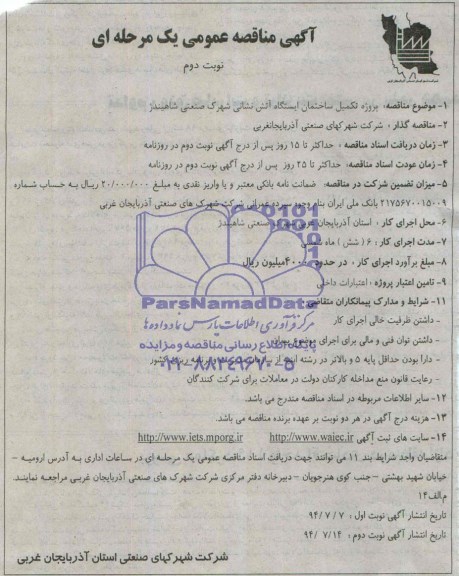 آگهی مناقصه عمومی یک مرحله ای
نوبت دوم
۱- موضوع مناقصه: پروژه تکمیل ساختمان ایستگاه آتش نشانی شهرک صنعتی شاهیندژ
۲- مناقصه گذار: شرکت شهرکهای صنعتی آذربایجانغربی
۳- زمان دریافت اسناد مناقصه: حداکثر تا ۱۵ روز پس از درج آگهی نوبت دوم در روزنامه
۴- زمان عودت اسناد مناقصه: حداکثر تا ۲۵ روز پس از درج آگهی نوبت دوم در روزنامه
۵- میزان تضمین شرکت در مناقصه: ضمانت نامه بانکی معتبر و یا واریز نقدی به مبلغ ۲۰/۰۰۰/۰۰۰ ریال به حساب شماره
۲۱۷۵۶۷۰۰۱۵۰۰۹ بانک ملی ایران بنام وجوه سپرده عمرانی شرکت شهرک های صنعتی آذربایجان غربی
۶- محل اجرای کار: استان آذربایجان غربی شهرک صنعتی شاهیندژ
۷- مدت اجرای کار: ۶ (شش) ماه شمسی
۸- مبلغ برآورد اجرای کار: در حدود میلیون ریال
۹- تامین اعتبار پروژه: اعتبارات داخلی
۱۱- شرایط و مدارک پیمانکاران متقاضی:
- داشتن ظرفیت خالی اجرای کار
- داشتن توان فنی و مالی برای اجرای موضوع پیمان
- دارا بودن حداقل پایه ۵ و بالاتر در رشته ابنیه از کشور
- رعایت قانون منع مداخله کارکنان دولت در معاملات برای شرکت کنندگان
۱۲- سایر اطلاعات مربوطه در اسناد مناقصه مندرج می باشد.
۱۳- هزینه درج آگهی در هر دو نوبت بر عهده برنده مناقصه می باشد.
۱۴- سایت های ثبت آگهی http://www.waiec.ir http://www.iets.mporg.ir
متقاضیان واجد شرایط بند ۱۱ می توانند جهت دریافت اسناد مناقصه عمومی یک مرحله ای در ساعات اداری به آدرس ارومیه -
خیابان شهید بهشتی - جنب کوی هنرجویان - دبیرخانه دفتر مرکزی شرکت شهرک های صنعتی آذربایجان غربی مراجعه نمایند.
م الف ۱۴
تاریخ انتشار آگهی نوبت اول: ۹۴/۷/۷
تاریخ انتشار آگهی نوبت دوم: ۹۴/۷/۱۴
شرکت شهرکهای صنعتی استان آذربایجان غربی
ParsNamadData
مرکز فرآوری اطلاعات پارس نماد داده ها
پایگاه اطلاع رسانی مناقصه و مزایده
۰۲۱-۸۸۳۴۹۶۷۰-۵